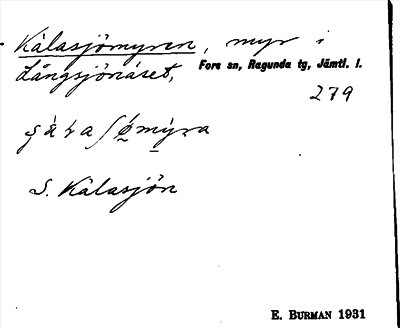 Kälasjömyren, myr i
Långsjönäset, Fors sn, Ragunda tg, Jämtl. l.
279
S. Kälasjön
E. BURMAN 1931